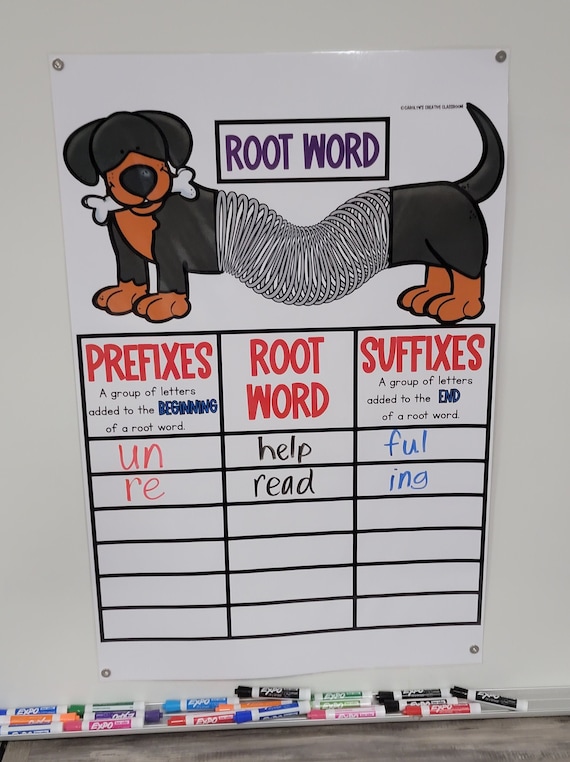 ©CAROLYN'S CREATIVE CLASSROOM
ROOT WORD
PREFIXES
A group of letters
added to the BEGINNING
of a root word.
ROOT
WORD
SUFFIXES
A group of letters
added to the END
of a root word.
un help ful
re read ing
EXPO
EXPO
EXPO
EXPO
EXPO
EXPO